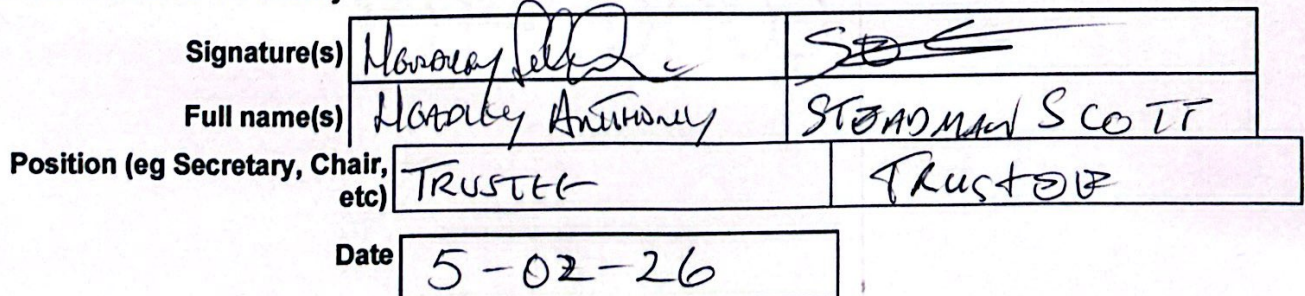 Signature(s)
Full name(s) HEADLEY ANTHONY STEADMAN SCOTT
Position (eg Secretary, Chair, etc) TRUSTEE TRUSTEE
Date 5-02-26